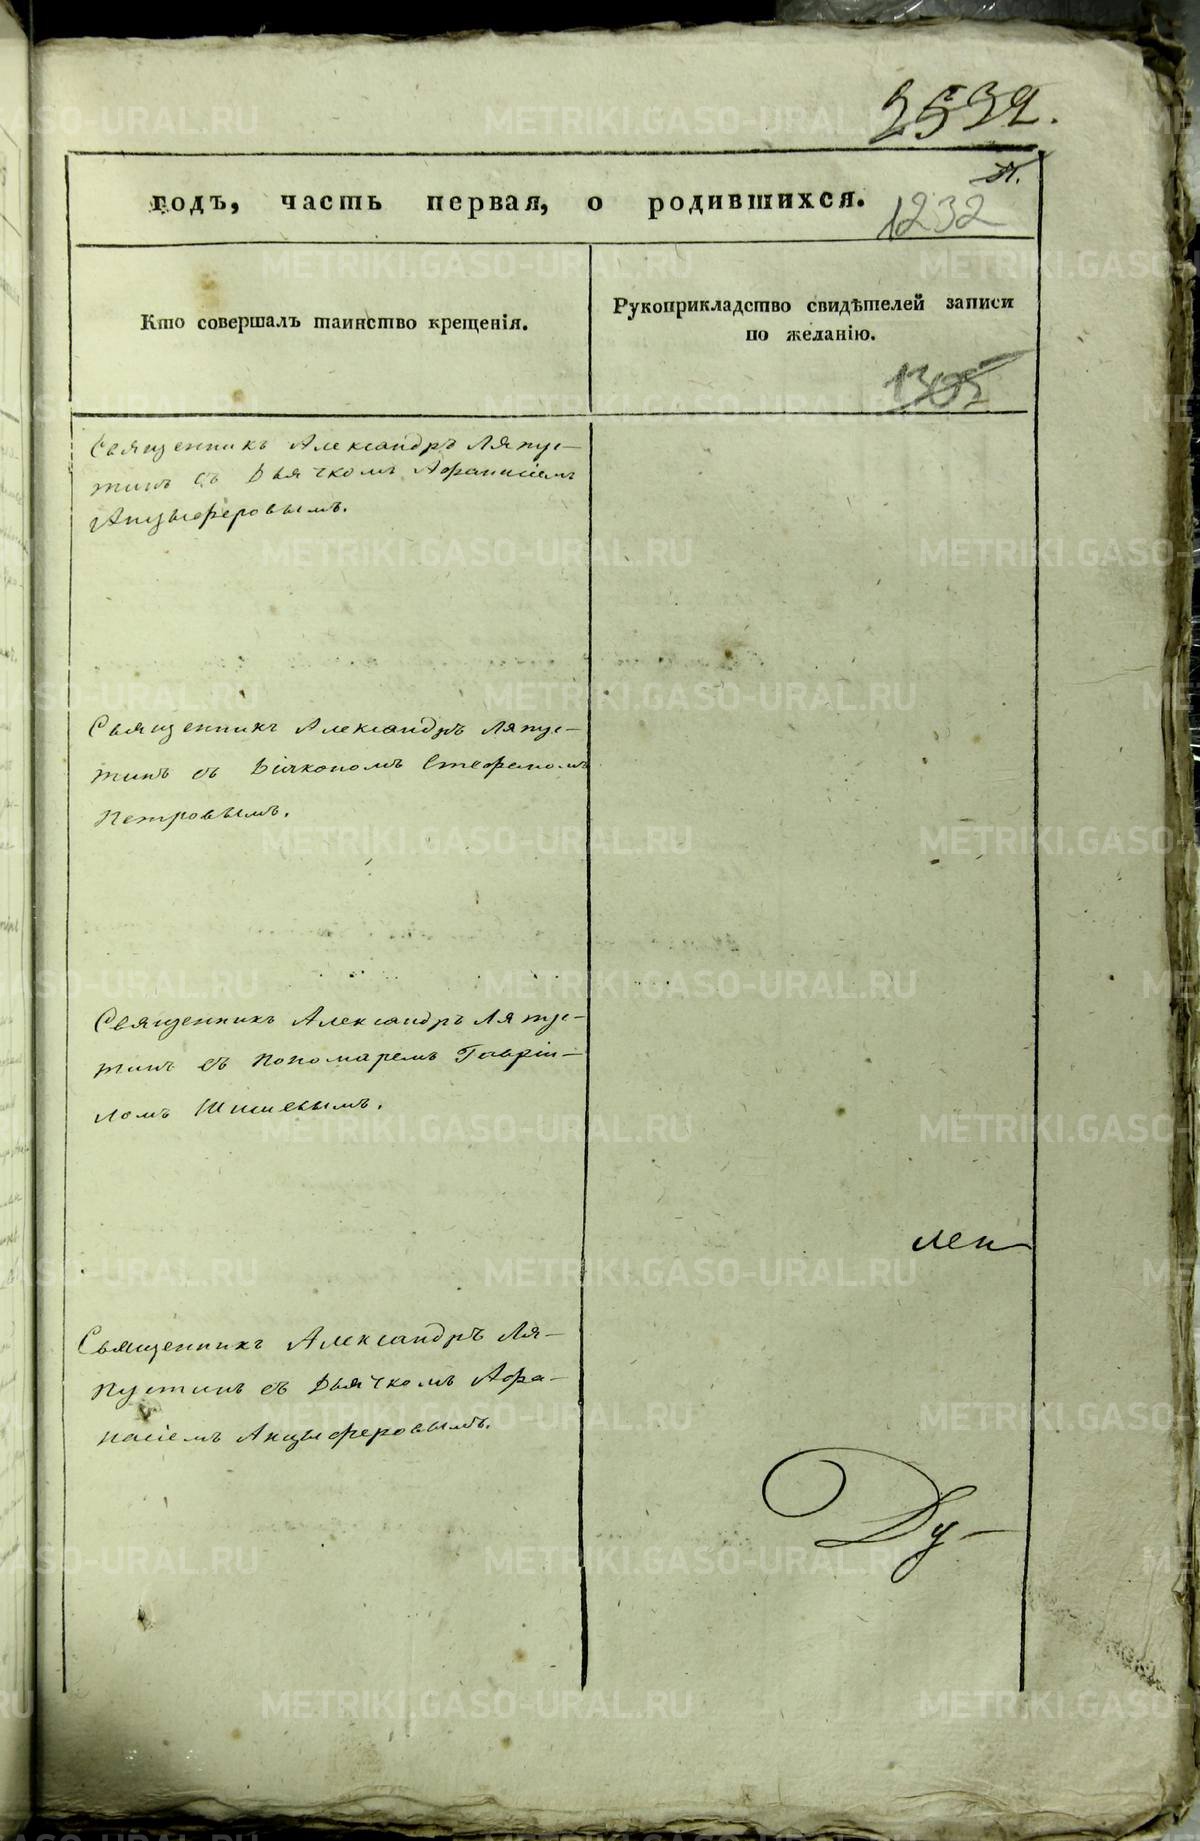 2532.
годъ, часть первая, о родившихся.
1232
Кто совершалъ таинство крещенія.
Рукоприкладство свидѣтелей записи
по желанію.
1305
Священникъ Александръ Ляпус-
тинъ съ Дьячкомъ Афанасіемъ
Анцыферовымъ.
Священникъ Александръ Ляпус-
тинъ съ Діякономъ Стефаномъ
Петровымъ.
Священникъ Александръ Ляпус-
тинъ съ Пономаремъ Гавріи-
ломъ Шишевымъ.
лен
Священникъ Александръ Ля-
пустинъ съ Дьячкомъ Афа-
насіемъ Анцыферовымъ.
Ду-
METRIKI.GASO-URAL.RU